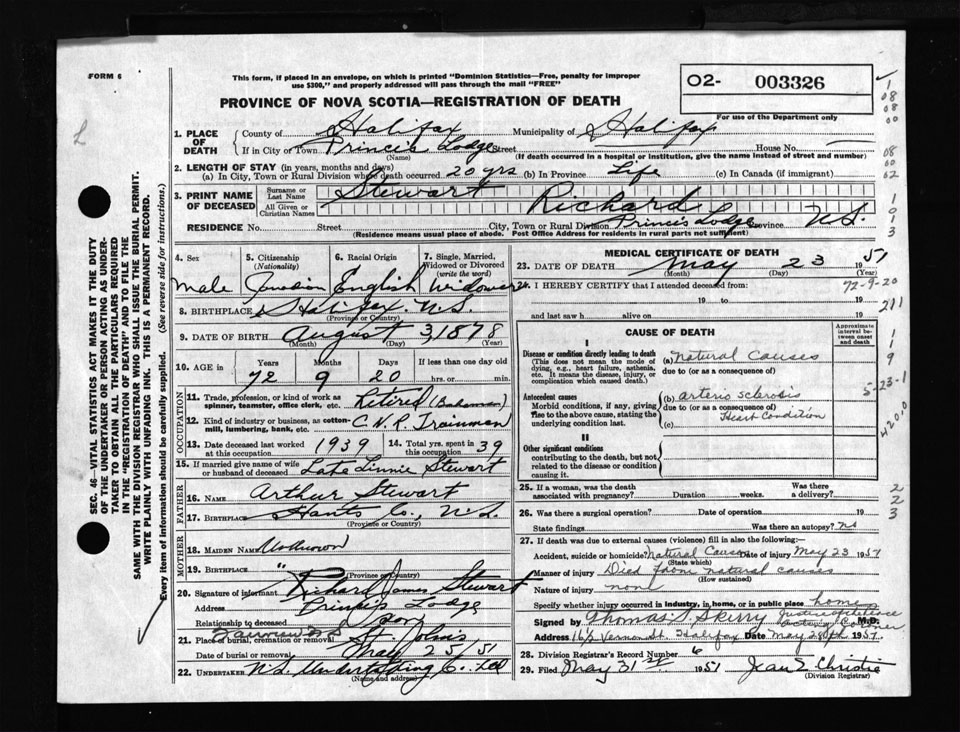 FORM 6
This form, if placed in an envelope, on which is printed "Dominion Statistics—Free, penalty for improper
use $300," and properly addressed will pass through the mail "FREE"
02- 003326
For use of the Department only
PROVINCE OF NOVA SCOTIA—REGISTRATION OF DEATH
SEC. 46—VITAL STATISTICS ACT MAKES IT THE DUTY
OF THE UNDERTAKER OR PERSON ACTING AS UNDER-
TAKER TO OBTAIN ALL THE PARTICULARS REQUIRED
IN THE "REGISTRATION OF DEATH" AND TO FILE THE
SAME WITH THE DIVISION REGISTRAR WHO SHALL ISSUE THE BURIAL PERMIT.
WRITE PLAINLY WITH UNFADING INK. THIS IS A PERMANENT RECORD.
Every item of information should be carefully supplied. (See reverse side for instructions.)
1. PLACE OF DEATH County of Halifax Municipality of Halifax
If in City or Town Princis Lodge Street House No.
(Name) (If death occurred in a hospital or institution, give the name instead of street and number)
2. LENGTH OF STAY (in years, months and days)
(a) In City, Town or Rural Division where death occurred. 20 yrs (b) In Province Life (c) In Canada (if immigrant)
3. PRINT NAME OF DECEASED Surname or Last Name Stewart
All Given or Christian Names Richard
RESIDENCE No. Street City, Town or Rural Division Princis Lodge Province N.S.
(Residence means usual place of abode. Post Office Address for residents in rural parts not sufficient)
4. Sex 5. Citizenship (Nationality) 6. Racial Origin 7. Single, Married, Widowed or Divorced (write the word)
Male Canadian English Widower
8. BIRTHPLACE Halifax N.S.
(Province or Country)
9. DATE OF BIRTH August 3 1878
(Month) (Day) (Year)
10. AGE in Years Months Days If less than one day old
72 9 20 hrs. or min.
OCCUPATION
11. Trade, profession, or kind of work as spinner, teamster, office clerk, etc. Retired
12. Kind of industry or business, as cotton-mill, lumbering, bank, etc. C.N.R. Trainman
13. Date deceased last worked at this occupation 1939 14. Total yrs. spent in this occupation 39
15. If married give name of wife or husband of deceased Late Linnie Stewart
FATHER
16. NAME Arthur Stewart
17. BIRTHPLACE Hants Co., N.S.
(Province or Country)
MOTHER
18. MAIDEN NAME Unknown
19. BIRTHPLACE "
(Province or Country)
20. Signature of informant Richard James Stewart
Address Princis Lodge
Relationship to deceased Son
21. Place of burial, cremation or removal Fairview N.S. St. John's
Date of burial or removal May 25/51
22. UNDERTAKER N.S. Undertaking Co. Ltd
(Name and address)
MEDICAL CERTIFICATE OF DEATH
23. DATE OF DEATH May 23 1951
(Month) (Day) (Year)
24. I HEREBY CERTIFY that I attended deceased from:
19 to 19
and last saw h alive on 19
72-9-20
211
CAUSE OF DEATH
Approximate interval between onset and death
I
Disease or condition directly leading to death
(This does not mean the mode of dying, e.g., heart failure, asthenia, etc. It means the disease, injury, or complication which caused death.
(a) Natural Causes
due to (or as a consequence of)
Antecedent causes
Morbid conditions, if any, giving rise to the above cause, stating the underlying condition last.
(b) arterio sclerosis
due to (or as a consequence of)
Heart Condition
(c)
II
Other significant conditions
contributing to the death, but not related to the disease or condition causing it.
5-23-1
4200
25. If a woman, was the death associated with pregnancy? Duration weeks. Was there a delivery?
26. Was there a surgical operation? Date of operation 19
State findings Was there an autopsy? no
27. If death was due to external causes (violence) fill in also the following:—
Accident, suicide or homicide? Natural Causes Date of injury May 23 1951
(State which)
Manner of injury Died from natural causes
(How sustained)
Nature of injury none
Specify whether injury occurred in industry, in home, or in public place home
Signed by Thomas S. Skerry M.D.
Justice of Peace
Acting Coroner
Address 16½ Vernon St. Halifax Date May 28th 1951
28. Division Registrar's Record Number 6
29. Filed May 31st 1951 Jean E Christie
(Division Registrar)